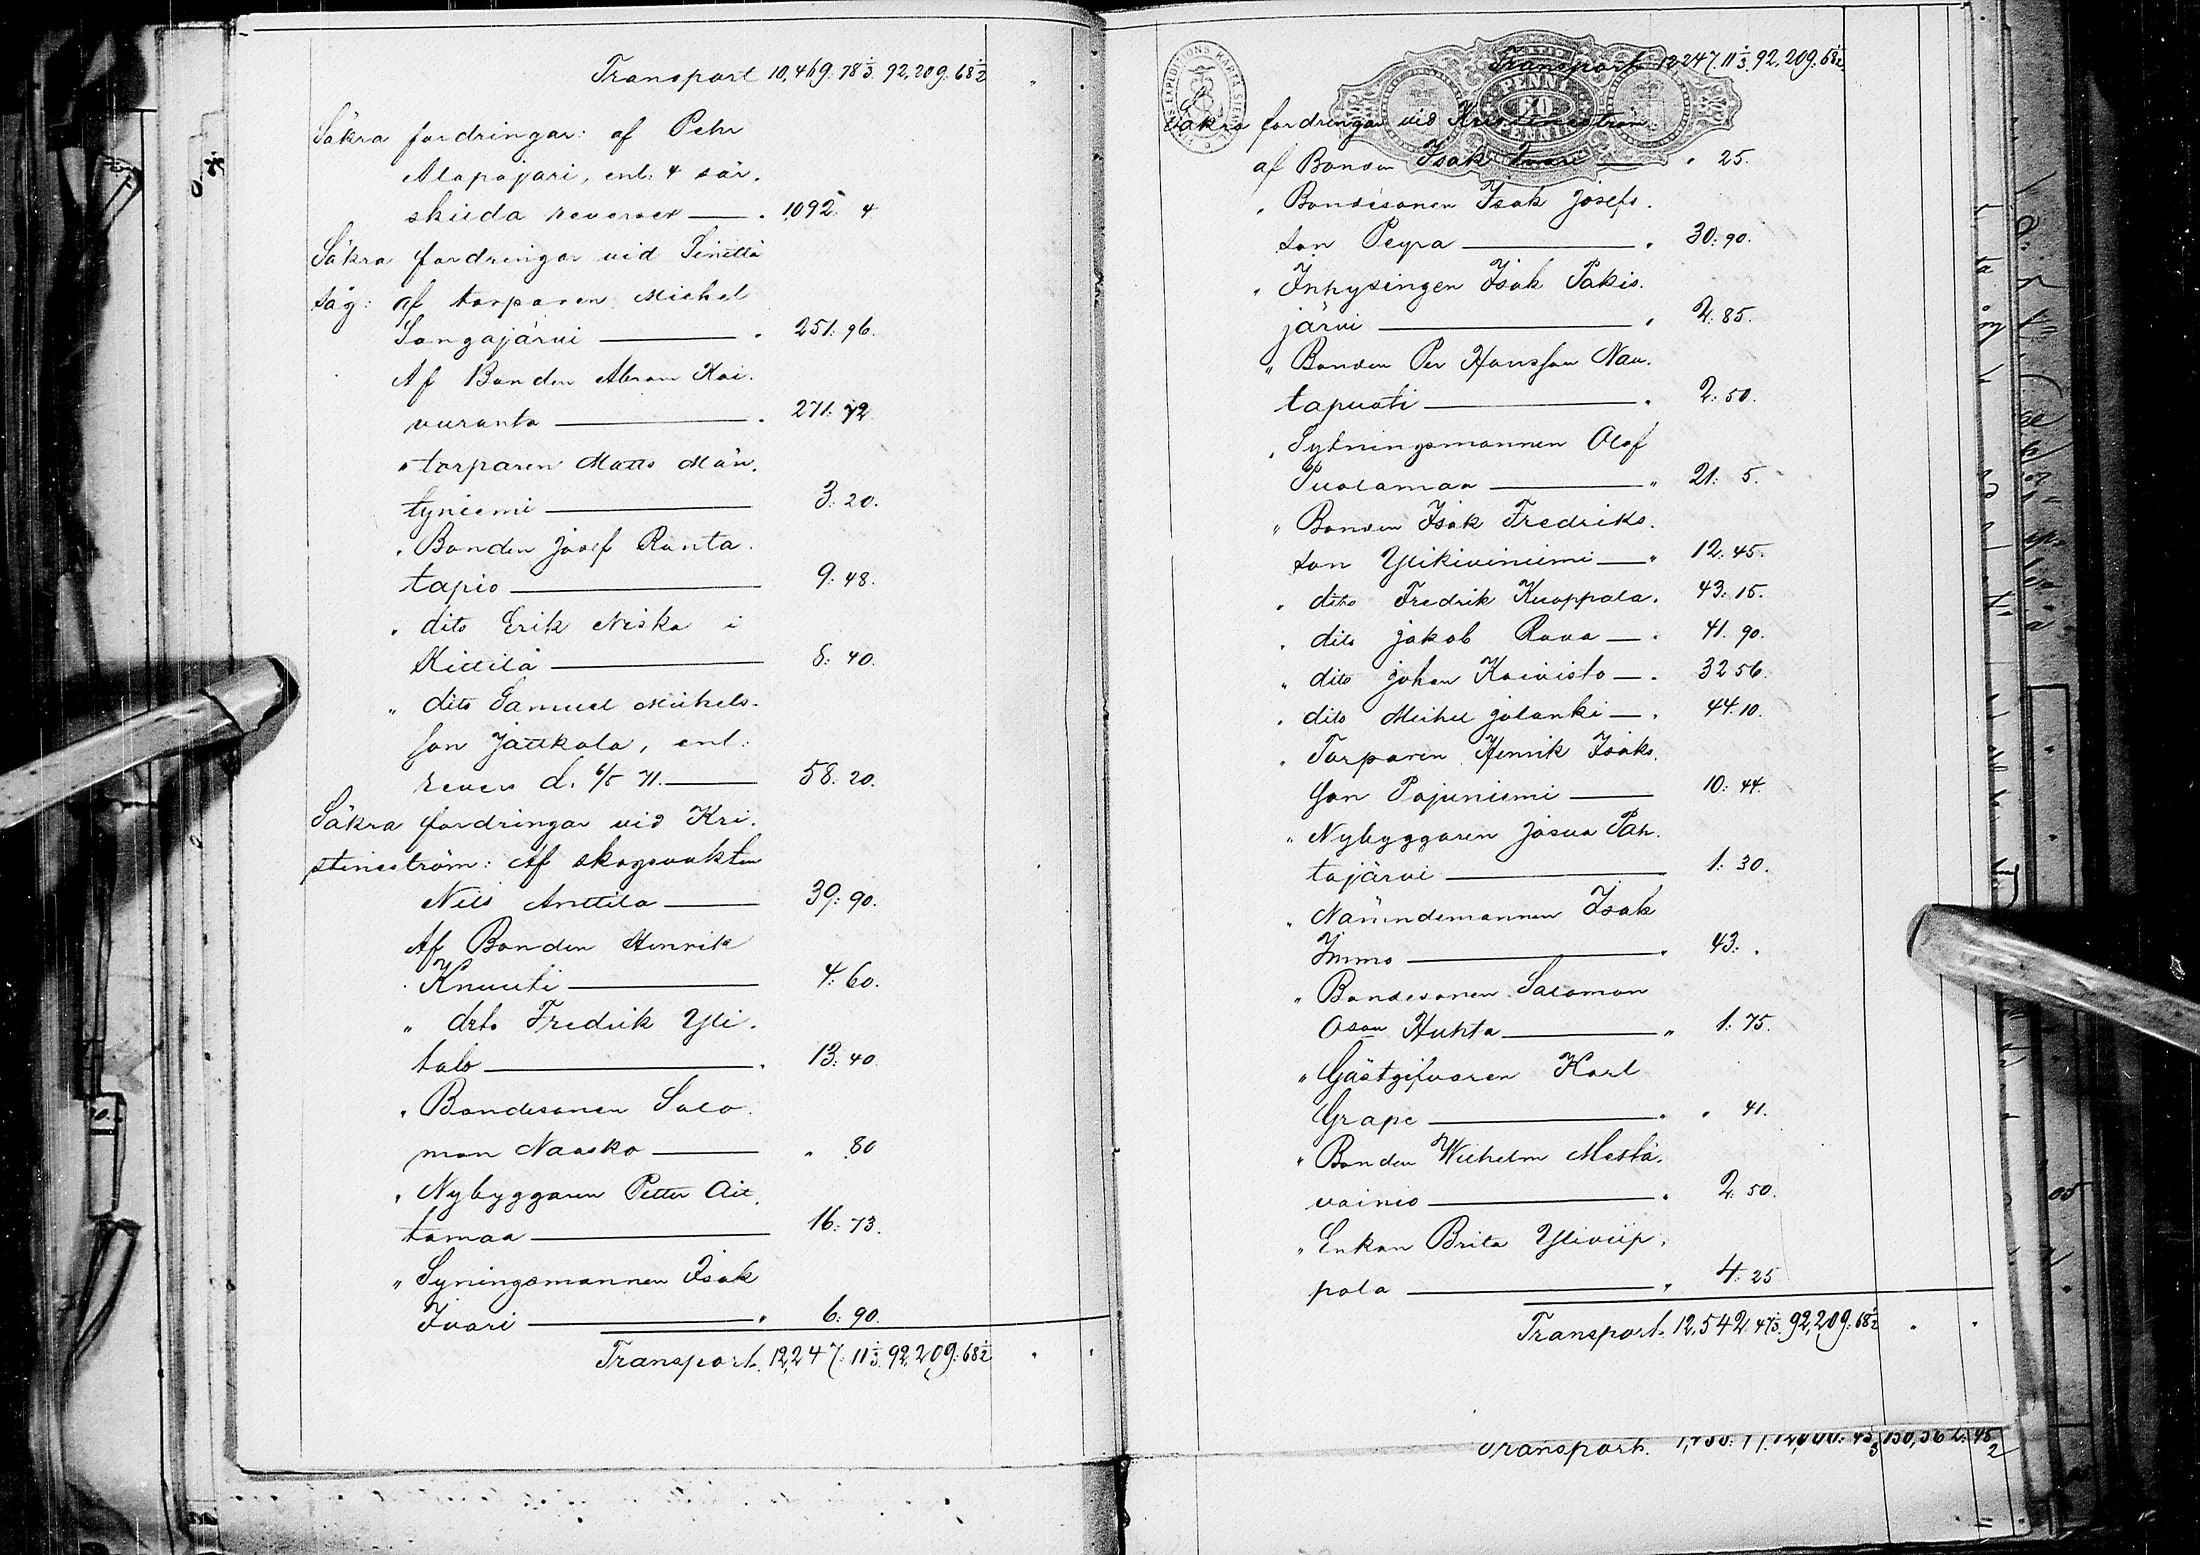 Transport 10,469: 78 1/3. 92,209: 68 1/2
Säkra fordringar: af Pehr
Alapajari, enl: 4 sär.
skilda reverser — . 1092: 4
Säkra fordringar vid Sinettä
såg: af torparen Michel
Songajärvi — . 251: 96.
Af Bonden Abram Koi.
vuranta — . 271: 72
" torparen Matts Män.
tyniemi — 3: 20.
" Bonden Josef Ranta.
tapio — 9: 48.
" dito Erik Niska i
Kittilä — 8: 40.
" dito Samuel Michels-
son Jatkola, enl:
revers d. 6/5 71. — 58. 20.
Säkra fordringar vid Kri.
stineström: Af skogsvakten
Nils Anttila — 39: 90.
Af Bonden Henrik
Knuuti — 4: 60.
" dito Fredrik Yli.
talo — . 13: 40.
" Bondesonen Salo.
mon Naasko — " 80
" Nybyggaren Petter Ait.
tamaa — 16: 73.
" Syningsmannen Isak
Ivari — " 6: 90.
Transport. 12,247: 11 1/3. 92,209: 68 1/2
Transport. 12,247. 11 1/3. 92,209. 68 1/2
PENNI
60
PENNIÄ
Säkra fordringar vid Kristineström
af Bonden Isak Ivari — " 25.
" Bondesonen Isak Josefs.
son Peyra — " 30: 90.
" Inhysingen Isak Pakis.
järvi — " 2: 85.
" Bonden Per Hansson Nau.
tapuoti — " 2: 50.
" Sytningsmannen Olof
Puolamaa — " 21: 5.
" Bonden Isak Fredriks.
son Ylikiviniemi — " 12. 45.
" dito Fredrik Kuoppala. 43: 15.
" dito Jakob Rava — . 41. 90.
" dito Johan Koivisto — . 32 56.
" dito Michel Jolanki — . 44. 10.
" Torparen Henrik Isaks.
son Pajuniemi — 10: 44.
" Nybyggaren Josua Pah.
tajärvi — 1: 30.
" Nämndemannen Isak
Immo — . 43: "
" Bondesonen Salomon
Oson Huhta — " 1: 75.
" Gästgifvaren Karl
Grape — . " 41.
" Bonden Wilhelm Mestä.
vainio — . 2. 50.
" Enkan Brita Yliviip.
pola — " 4: 25
Transport. 12,542. 47 1/3. 92,209: 68 1/2
Transport.